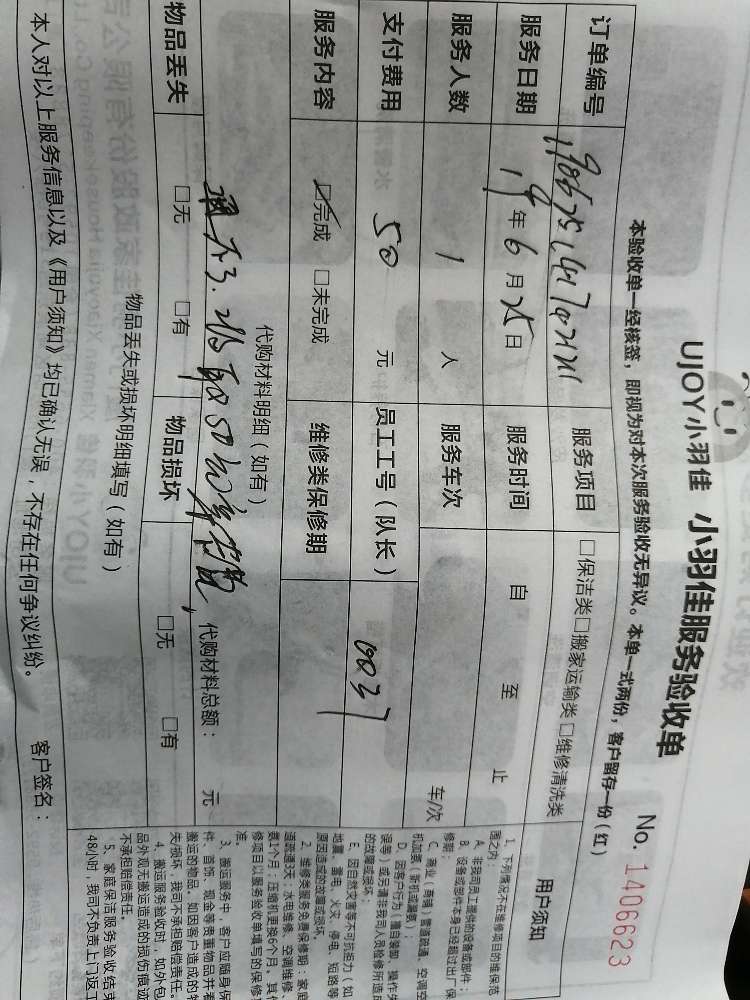 UJOY小羽佳 小羽佳服务验收单
No. 1406623
本验收单一经核签，即视为对本次服务验收无异议。本单一式两份，客户留存一份（红）
订单编号
服务项目 □保洁类□搬家运输类□维修清洗类
服务日期 19年6月25日 服务时间 自 至 止
服务人数 1 人 服务车次 车/次
支付费用 50 元 员工工号（队长） 0037
服务内容 ☑完成 □未完成 维修类保修期
代购材料明细（如有）
代购材料总额： 元
物品丢失 □无 □有 物品损坏 □无 □有
物品丢失或损坏明细填写（如有）
本人对以上服务信息以及《用户须知》均已确认无误，不存在任何争议纠纷。 客户签名：
用户须知
1、下列情况不在维修项目的维保范
围之内：
A、非我司员工提供的设备或部件；
B、设备或部件本身已经超过出厂保
修期；
C、商业（商铺）管道疏通、空调空
D、因客户行为（擅自装卸、操作失
误等）或另请非我司人员检修所造成
的故障或损坏；
E、因自然灾害等不可抗拒力（如
地震、雷电、火灾、停电、短路等
原因造成的故障或损坏。
2、维修类服务免费保修期：家庭
道疏通3天；水电维修、空调维修、
数1个月；压缩机更换6个月。其他
修项目以服务验收单填写的保修
准。
3、搬运服务中，客户应随身保
件、首饰、现金等贵重物品并看
搬运的物品，如因客户造成的物
失/损坏，我司不承担赔偿责任。
4、搬运服务验收时，如外包
品外观无搬运造成的损伤痕迹
不承担赔偿责任。
5、家庭保洁服务验收结束
48小时，我司不负责上门返工